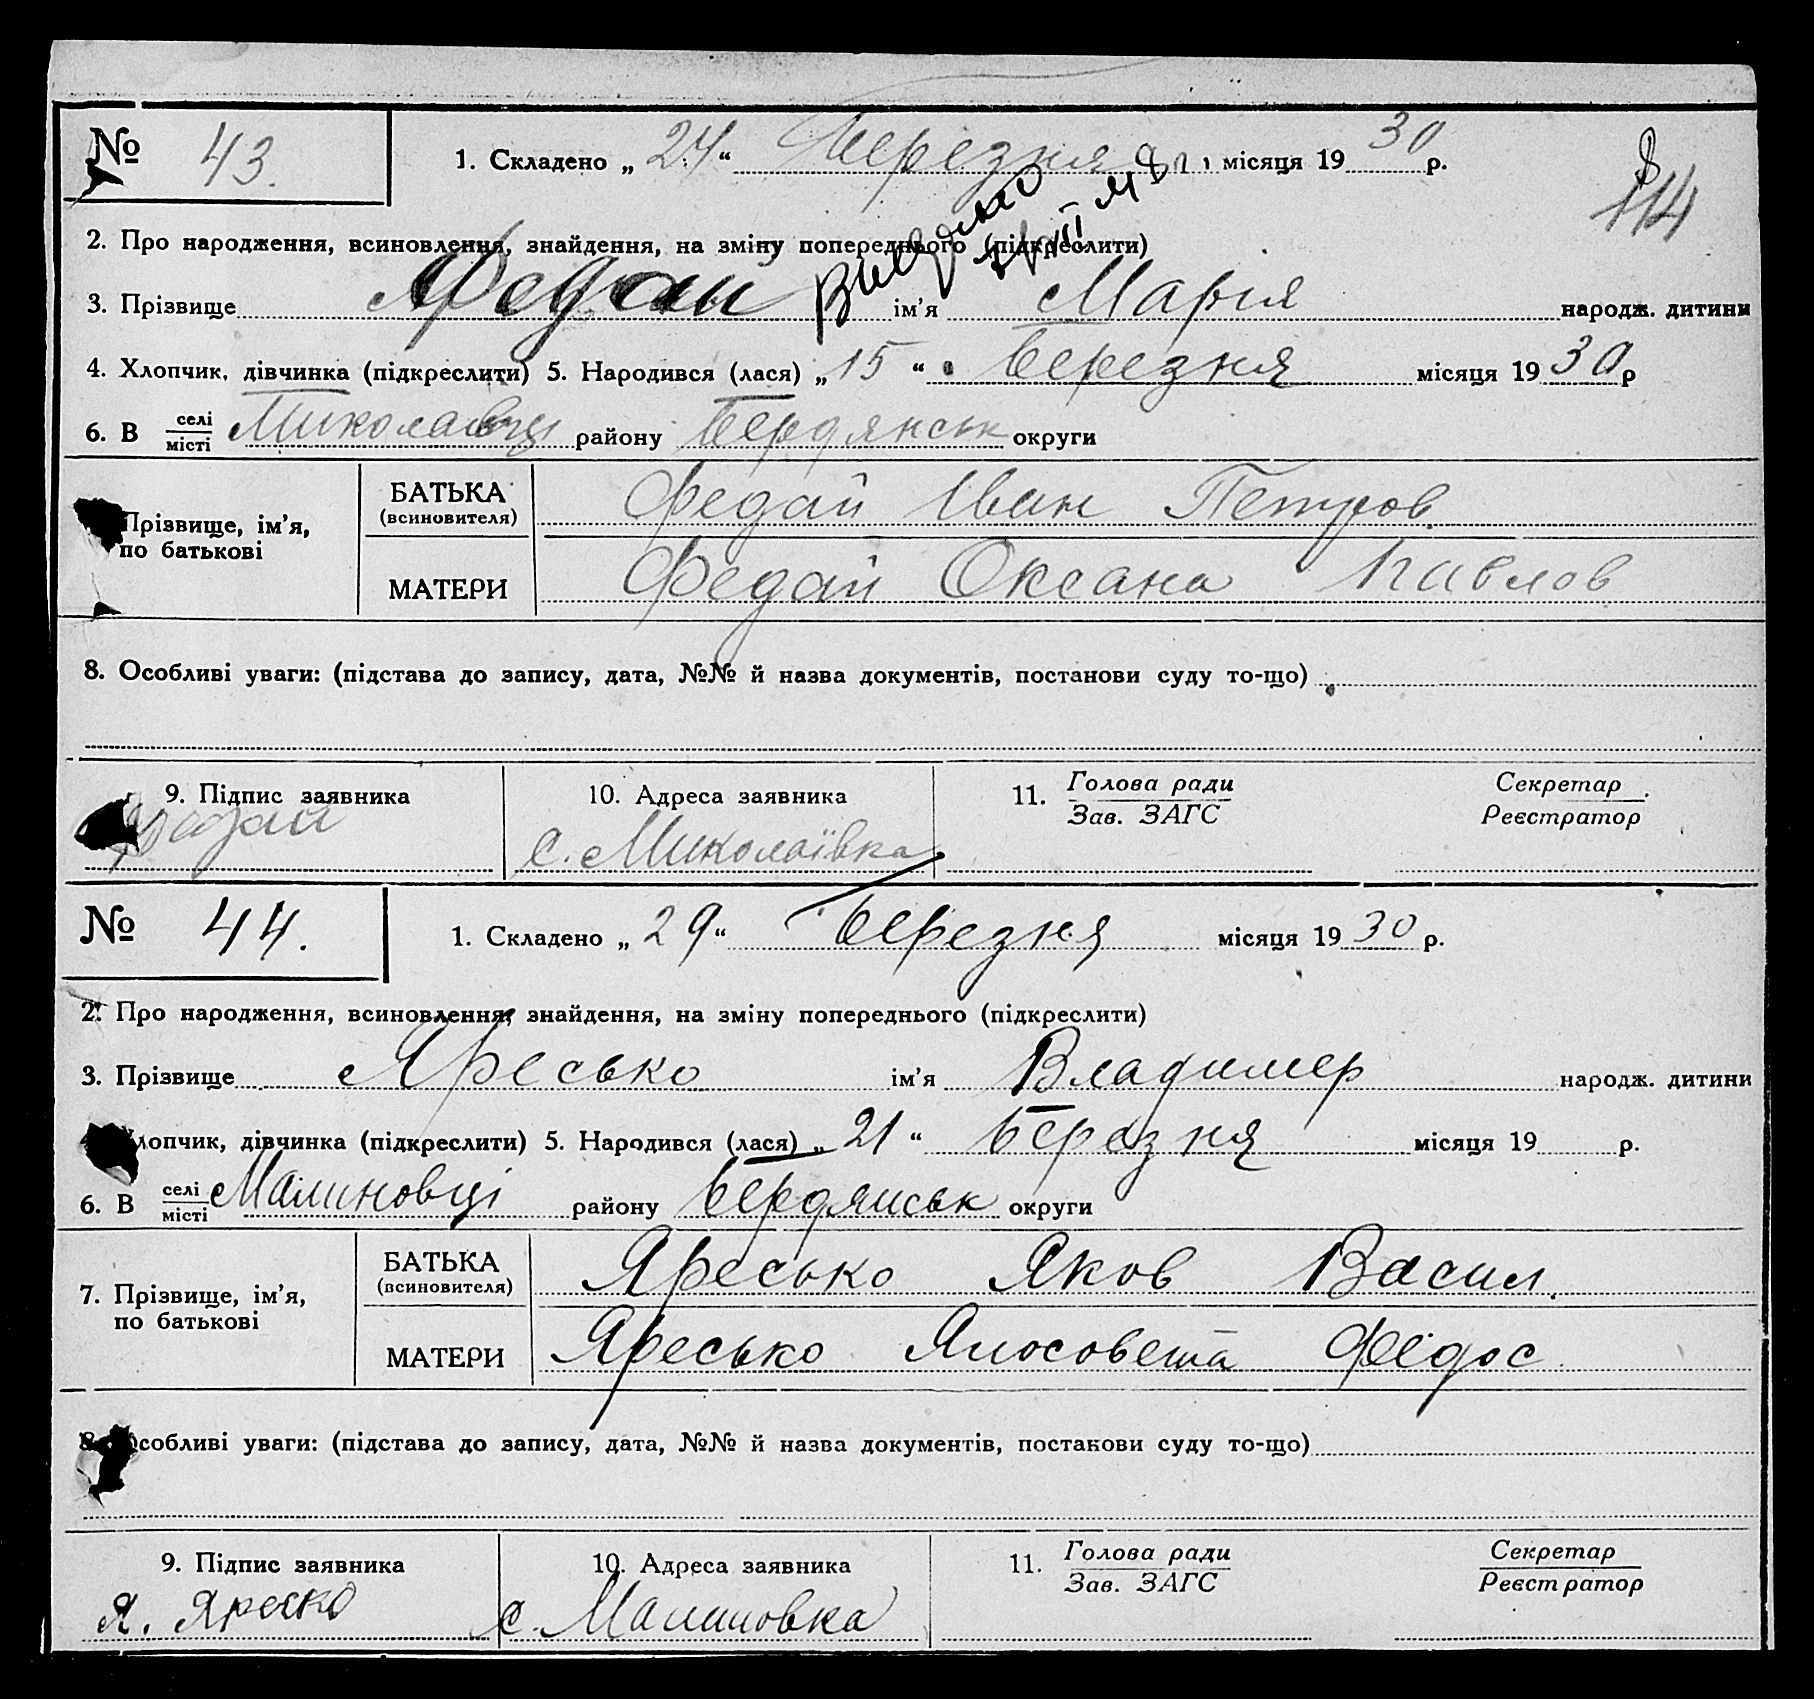 № 43. 1. Складено „ 24 “ березня місяця 1930 р.
114
2. Про народження, всиновлення, знайдення, на зміну попереднього (підкреслити)
3. Прізвище Федай ім'я Марія народж. дитини
4. Хлопчик, дівчинка (підкреслити) 5. Народився (лася) „ 15 “ березня місяця 1930 р
6. В селі місті Миколаївці району Бердянськ округи
Прізвище, ім'я, по батькові
БАТЬКА (всиновителя) Федай Іван Петров.
МАТЕРИ Федай Оксана Павлов
8. Особливі уваги: (підстава до запису, дата, №№ й назва документів, постанови суду то-що)
9. Підпис заявника 10. Адреса заявника 11. Голова ради Зав. ЗАГС Секретар Реєстратор
Федай с. Миколаївка
№ 44. 1. Складено „ 29 “ березня місяця 1930 р.
2. Про народження, всиновлення, знайдення, на зміну попереднього (підкреслити)
3. Прізвище Яресько ім'я Владимер народж. дитини
лопчик, дівчинка (підкреслити) 5. Народився (лася) „ 21 “ березня місяця 19 р.
6. В селі місті Малиновці району Бердянськ округи
7. Прізвище, ім'я, по батькові
БАТЬКА (всиновителя) Яресько Яков Васил.
МАТЕРИ Яресько Ялосовета Федос
8. Особливі уваги: (підстава до запису, дата, №№ й назва документів, постанови суду то-що)
9. Підпис заявника 10. Адреса заявника 11. Голова ради Зав. ЗАГС Секретар Реєстратор
Я. Яреско с. Малиновка